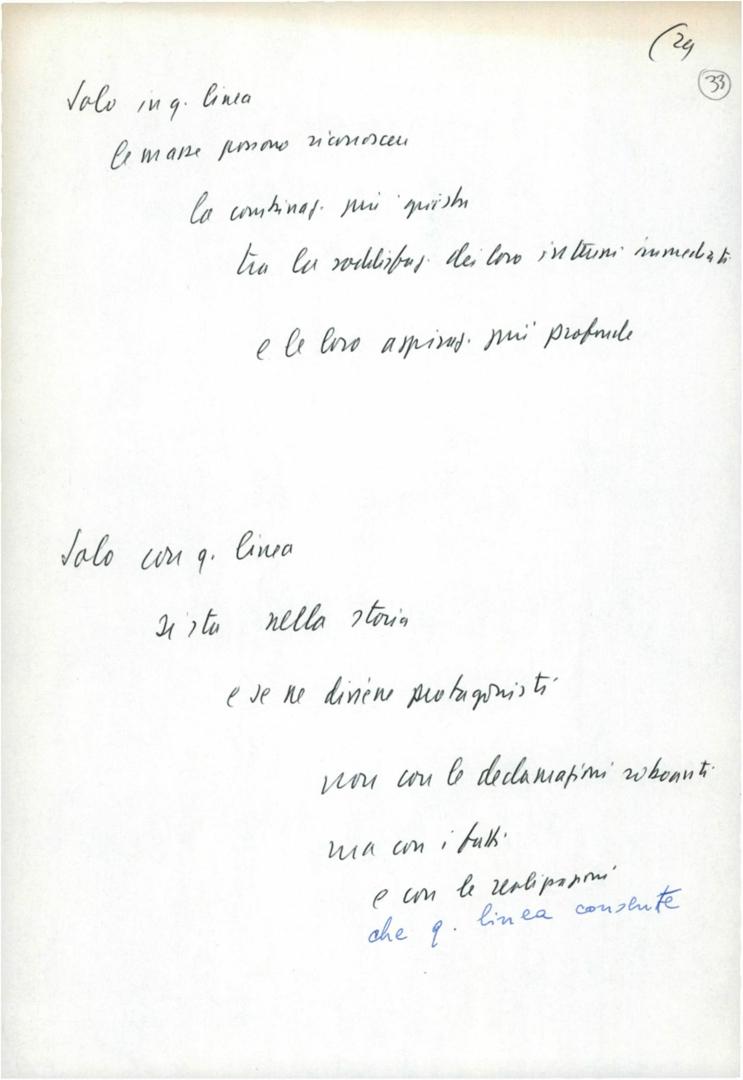 (29
33
Solo in q. linea
le masse possono riconoscere
la combinaz. più giusta
tra la soddisfaz. dei loro interessi immediati
e le loro aspiraz. più profonde
Solo con q. linea
si sta nella storia
e se ne diviene protagonisti
non con le declamazioni roboanti
ma con i fatti
e con le realizzazioni
che q. linea consente